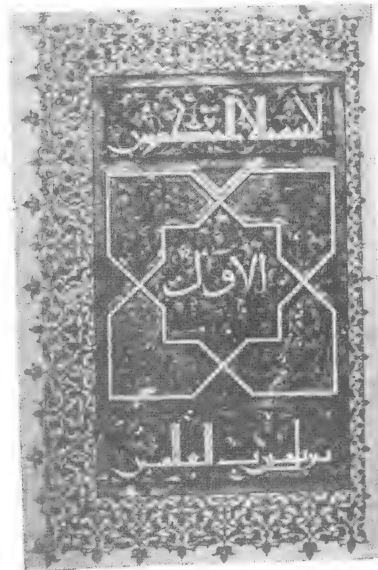 لا يمسه الا المطهرون
الاول
تنزيل من رب العلمين